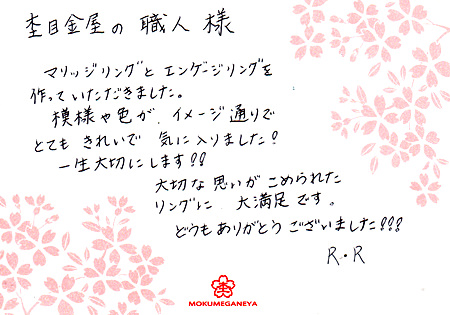 杢目金屋の職人様
マリッジリングとエンゲージリングを
作っていただきました。
模様や色が、イメージ通りで
とてもきれいで気に入りました!
一生大切にします!!
大切な思いがこめられた
リングに、大満足です。
どうもありがとうございました!!!
R・R
杢
MOKUMEGANEYA